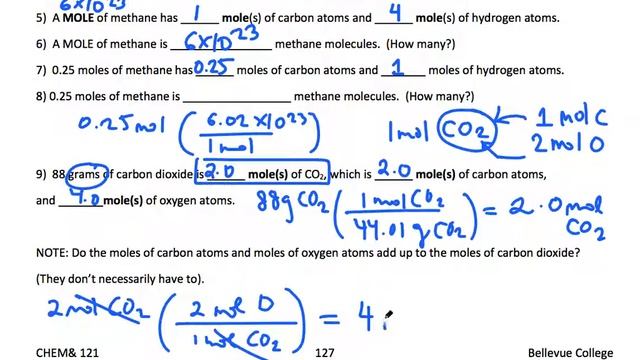 6X10²³
5) A MOLE of methane has 1 mole(s) of carbon atoms and 4 mole(s) of hydrogen atoms.
6) A MOLE of methane is 6X10²³ methane molecules. (How many?)
7) 0.25 moles of methane has 0.25 moles of carbon atoms and 1 moles of hydrogen atoms.
8) 0.25 moles of methane is ____________________ methane molecules. (How many?)
0.25 mol (6.02 X10²³ / 1 mol)
1 mol CO2
1 mol C
2 mol O
9) 88 grams of carbon dioxide is 2.0 mole(s) of CO₂, which is 2.0 mole(s) of carbon atoms,
and 4.0 mole(s) of oxygen atoms.
88g CO₂ (1 mol CO₂ / 44.01 g CO₂) = 2.0 mol CO₂
NOTE: Do the moles of carbon atoms and moles of oxygen atoms add up to the moles of carbon dioxide?
(They don't necessarily have to).
2 mol CO₂ (2 mol O / 1 mol CO₂) = 4.
CHEM& 121 127 Bellevue College